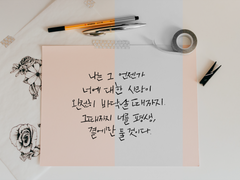 나는 그 언젠가
너에 대한 사랑이
완전히 바닥날 때까지.
그때까지 너를 평생,
곁에만 둘 것이다.